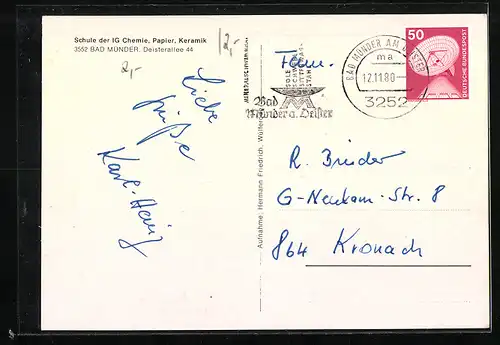 Schule der IG Chemie, Papier, Keramik
3552 BAD MÜNDER, Deisterallee 44
12,-
2,-
Liebe
Grüße
Karl-Heinz
Aufnahme: Hermann Friedrich,
SOLE
Bad
Münder a. Deister
BAD MÜNDER AM DEISTER
ma
12.11.80
3252
50
DEUTSCHE BUNDESPOST
Fam.
R. Brüder
G-Neukam-Str. 8
864 Kronach